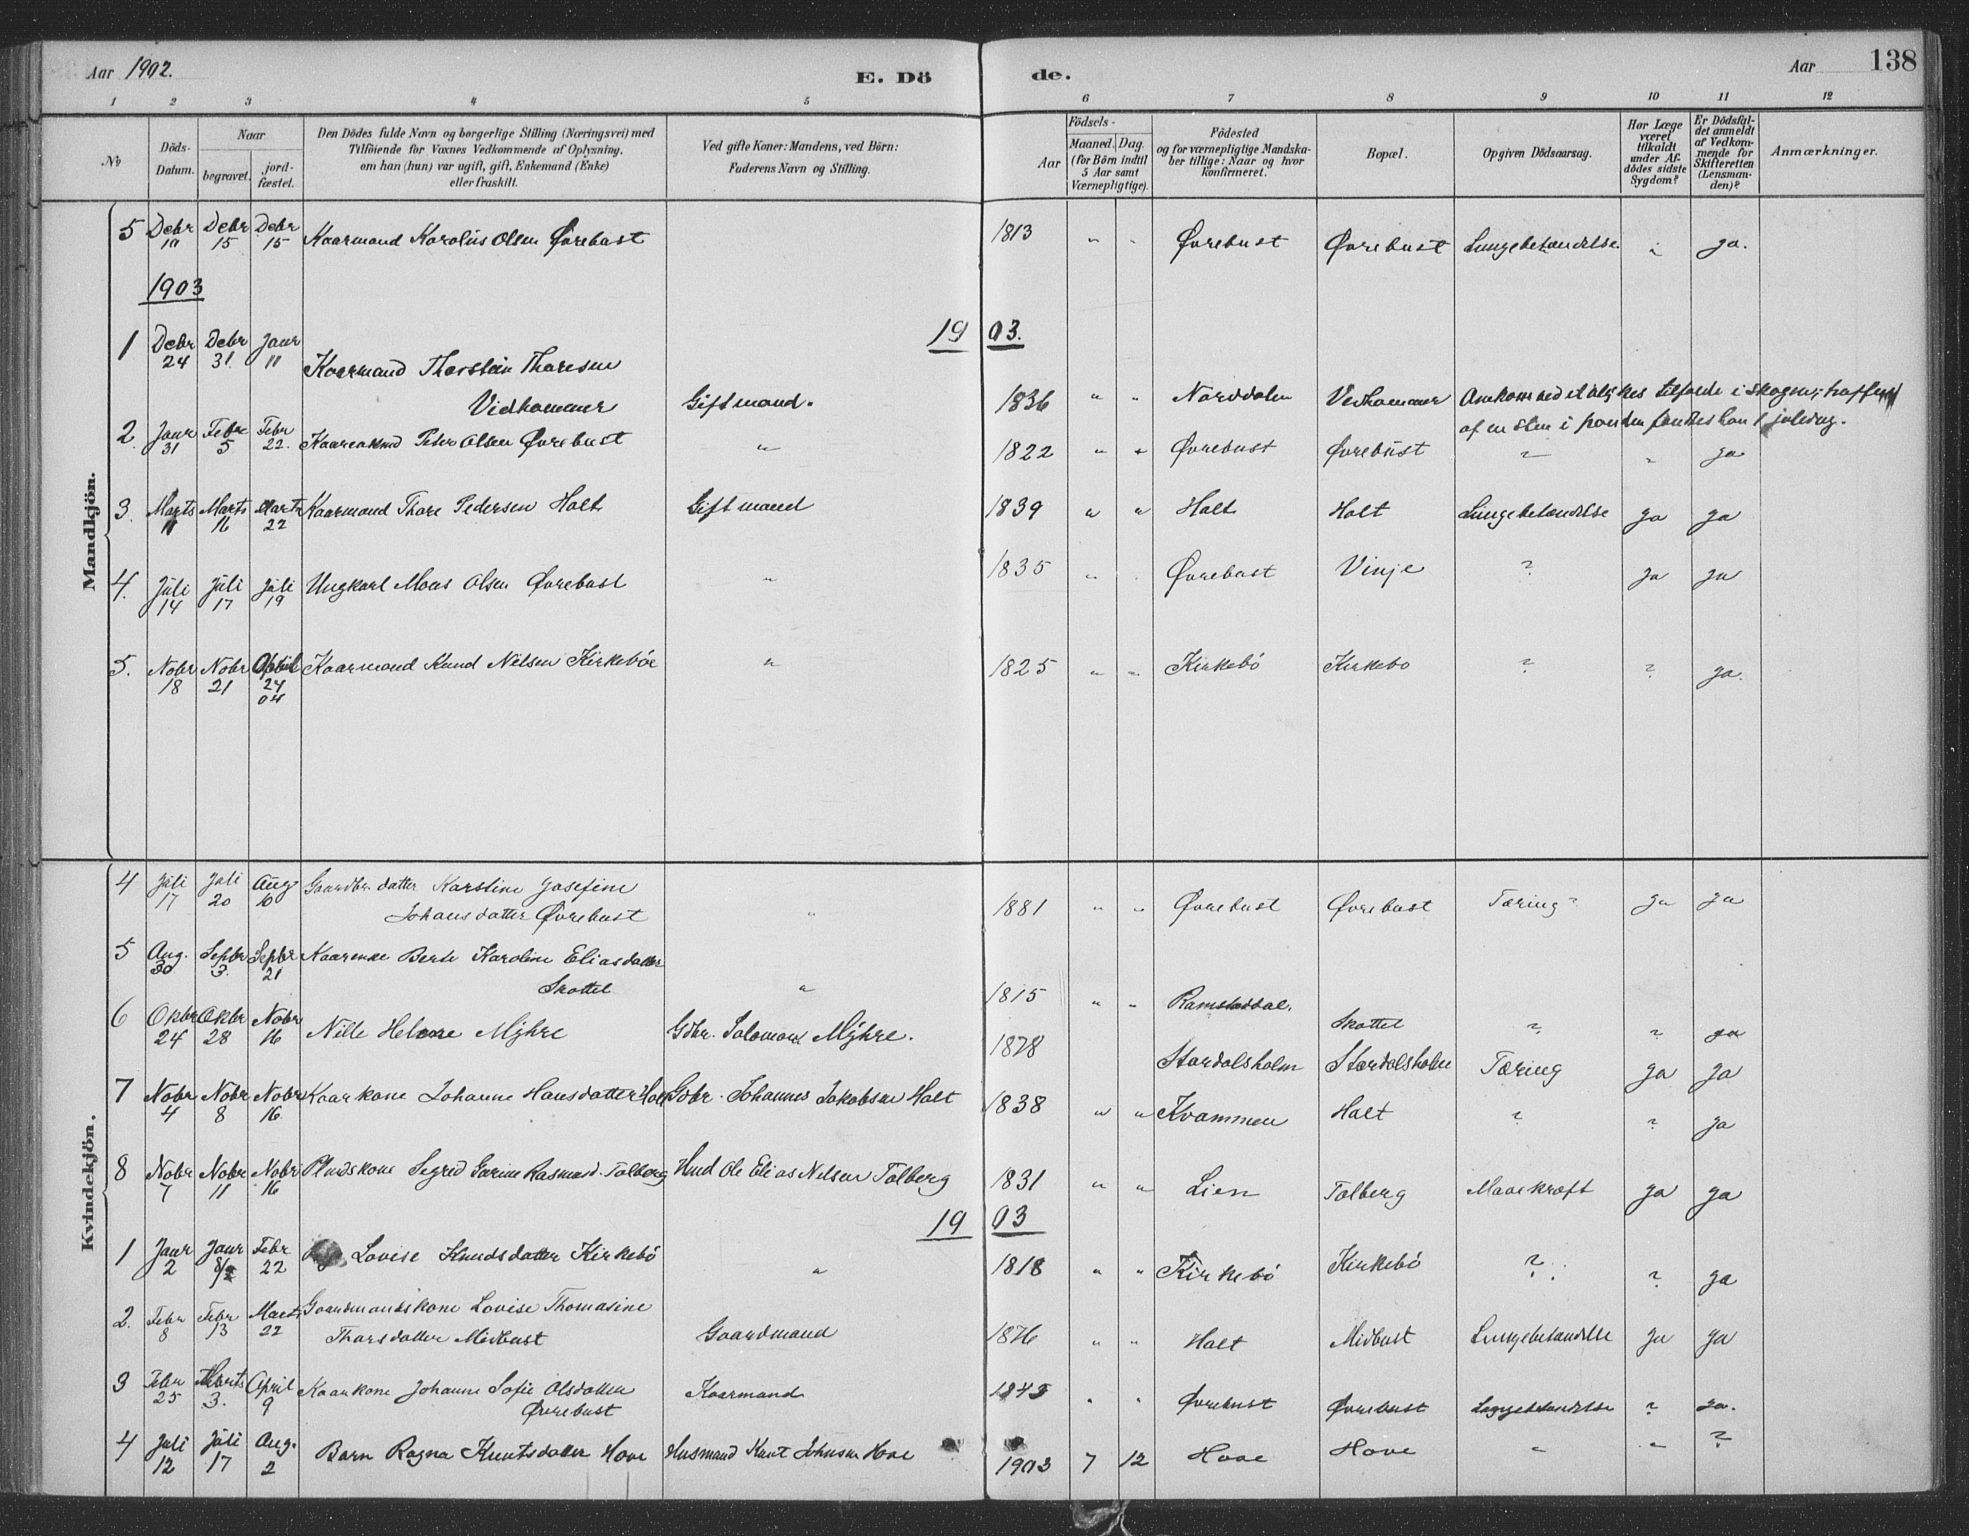 Aar 1902.
E. Dö
de.
Aar
138
1 2 3 4 5 6 7 8 9 10 11 12
No
Döds-
Datum.
Naar
begravet.
jord-
fæstet.
Den Dödes fulde Navn og borgerlige Stilling (Næringsvei) med
Tilföiende for Voxnes Vedkommende af Oplysning,
om han (hun) var ugift, gift, Enkemand (Enke)
eller fraskilt.
Ved gifte Koner: Mandens, ved Börn:
Faderens Navn og Stilling.
Födsels-
Aar
Maaned. Dag.
(for Börn indtil
5 Aar samt
Værnepligtige).
Födested
og for værnepligtige Mandska-
ber tillige: Naar og hvor
konfirmeret.
Bopæl.
Opgiven Dödsaarsag.
Har Læge
været
tilkaldt
under Af-
dödes sidste
Sygdom?
Er Dödsfal-
det anmeldt
af Vedkom-
mende for
Skifteretten
(Lensman-
den)?
Anmærkninger.
Mandkjön.
5 Debr 10 Debr 15 Debr 15 Kaarmand Karolus Olsen Øvrebust 1813 " " Øvrebust Øvrebust Lungebetændelse " ja.
1903
1903.
1 Debr 24 Debr 31 Janr 11 Kaarmand Thorstein Thoresen
Vidhammer Giftmand. 1836 " " Norddalen Vedhammer
tilfarde i skogen, truffen
af en sten i panden fandtes han 1 juledag.
2. Janr 31 Febr 5 Febr 22. Peder Olsen Øvrebust " 1822 " " Øvrebust Øvrebust " " ja
3. Marts 11 Marts 16 Marts 22 Kaarmand Thore Pedersen Holt Gift mand 1839 " " Holt Holt Lungebetændelse ja ja
4. Juli 14 Juli 17 Juli 19 Ungkarl Mons Olsen Øvrebust " 1835 " " Øvrebust Vinje ? ja ja
5. Nobr 18 Nobr 21 April 24 04 Kaarmand Knud Nilsen Kirkebøe " 1825 " " Kirkebö Kirkebo ? ? ja.
Kvindekjön.
4 Juli 17 Juli 20 Aug 10 Gaardbr. datter Karstine Josefine
Johansdatter Øvrebust " 1881 " " Øvrebust Øvrebust Tæring? ja ja
5 Aug. 30 Sepbr 3. Sepbr 21 Kaarenke Berte Karoline Eliasdatter
Skottet " 1815 " " Ramstaddal. Skottet ? ? ja
6 Okbr 24 Okbr 28 Nobr 16 Nille Helene Myhre Gdbr. Salomon Myhre. 1878 Stardalsholm Stardalsholm Tæring ja ja
7 Nobr 4 Nobr 8 Nobr 16 Kaarkone Johanne Hansdatter Holt Gdbr. Johannes Jakobsen Holt 1838 " " Kvammen Holt ? ? ja
8 Nobr 7 Nobr 11 Nobr 16 Segred Garine Rasmusd. Tolberg Husmd Ole Elias Nilsen Tolberg 1831 " " Lien Tolberg Mavekræft ja ja
1903
1 Janr 2 Janr 8/2 Febr 22 Lovise Knudsdatter Kirkebö " 1818 " " Kirkebö Kirkebö ? ? ja
2. Febr 8 Febr 13 Marts 22 Gaardmandskone Lovise Thomasine
Thorsdatter Midbust Gaardmand 1876 " " Holt Midbust Lungebetændelse ja ja
3 Febr 25 Marts 3. April 9 Kaarkone Johanne Sofie Olsdatter
Øvrebust Kaarmand 1845 " " Øvrebust Øvrebust Lungebetændelse ? ja.
4 Juli 12 Juli 17 Aug. 2 Barn Ragna Knutsdatter Hove Husmand Knut Johnsen Hove 1903 7 12 Hove Hove " " ?